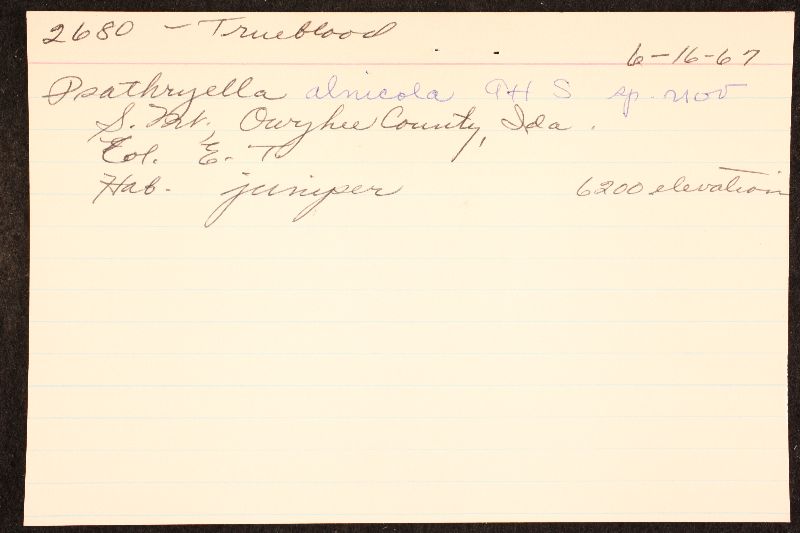 2680 - Trueblood
6-16-67
Psathryella alnicola AHS sp. nov
S. Mt., Owyhee County, Ida.
Col. E. T
Hab. juniper 6200 elevation